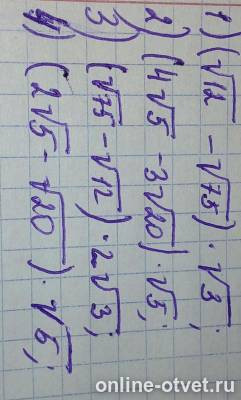 1) (√12 - √75) · √3;
2) (4√5 - 3√20) · √5;
3) (√75 - √12) · 2√3;
4) (2√5 - √20) · √5;
online-otvet.ru